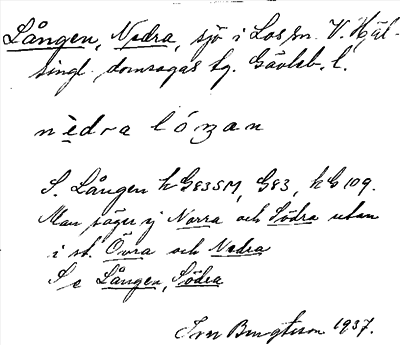 Lången, Nedra, sjö i Los sn. V. Häl-
singl. domsagas tg. Gävleb. l.
nèdra lóŋan
S. Lången k G83SM, G83, hG109.
Man säger ej Norra och Södra utan
i st. Övra och Nedra
Se Lången, Södra
Ivar Bengtsson 1937.